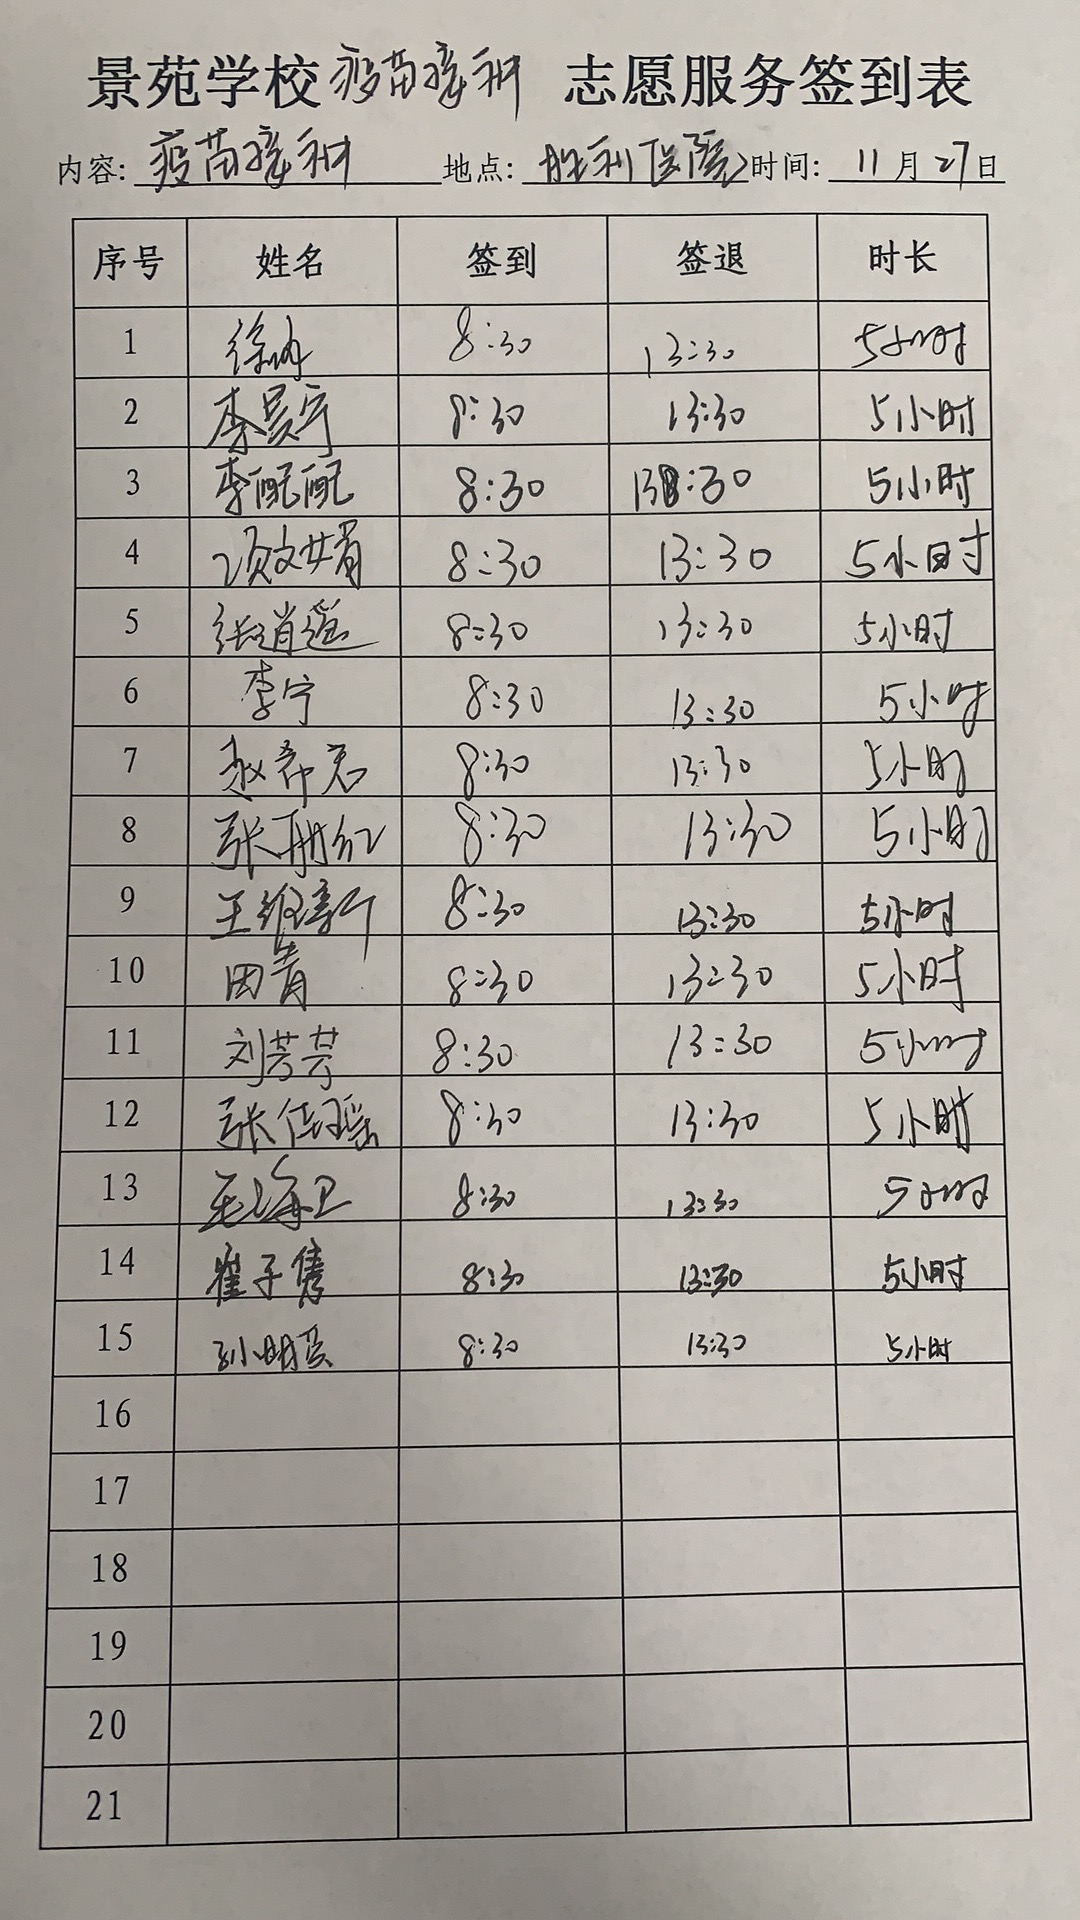 景苑学校疫苗接种 志愿服务签到表
内容: 疫苗接种 地点: 胜利医院 时间: 11月27日
序号 姓名 签到 签退 时长
1 8:30 13:30 5小时
2 李昊宁 8:30 13:30 5小时
3 李配配 8:30 13:30 5小时
4 项文娟 8:30 13:30 5小时
5 张逍遥 8:30 13:30 5小时
6 李宁 8:30 13:30 5小时
7 赵希君 8:30 13:30 5小时
8 张册红 8:30 13:30 5小时
9 8:30 13:30 5小时
10 田青 8:30 13:30 5小时
11 刘芳芳 8:30 13:30 5小时
12 张佳瑶 8:30 13:30 5小时
13 王海卫 8:30 13:30 5小时
14 崔子隽 8:30 13:30 5小时
15 8:30 13:30 5小时
16
17
18
19
20
21